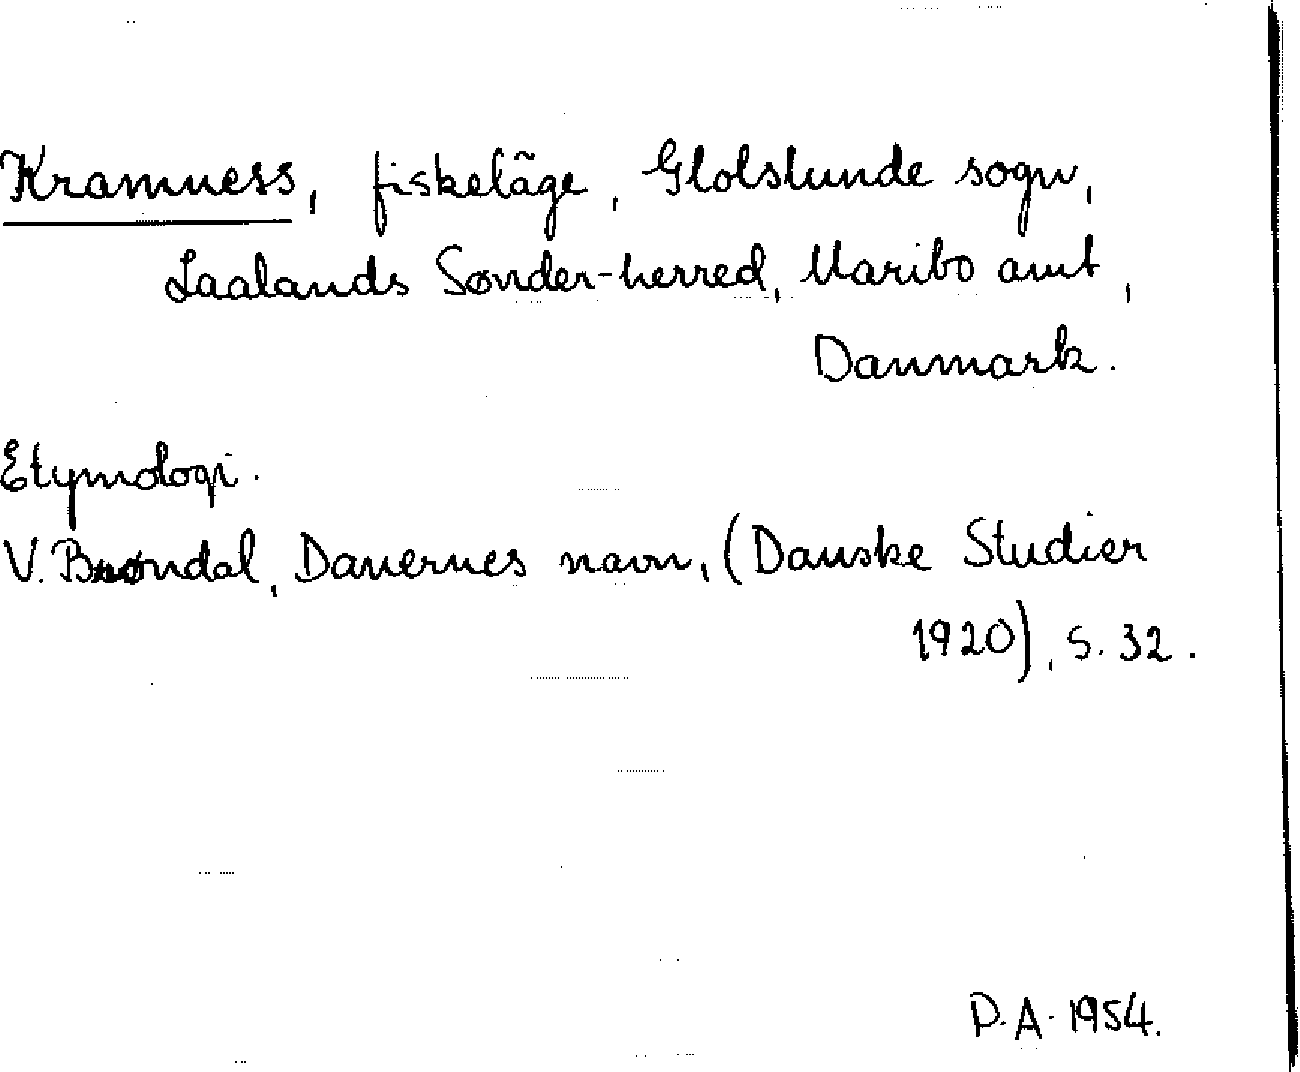 Kramness, fiskeläge, Glolslunde sogn,
Laalands Sønder-herred, Maribo amt,
Danmark.
Etymologi.
V. Brøndal, Danernes navn, (Danske Studier
1920), s. 32.
D. A. 1954.